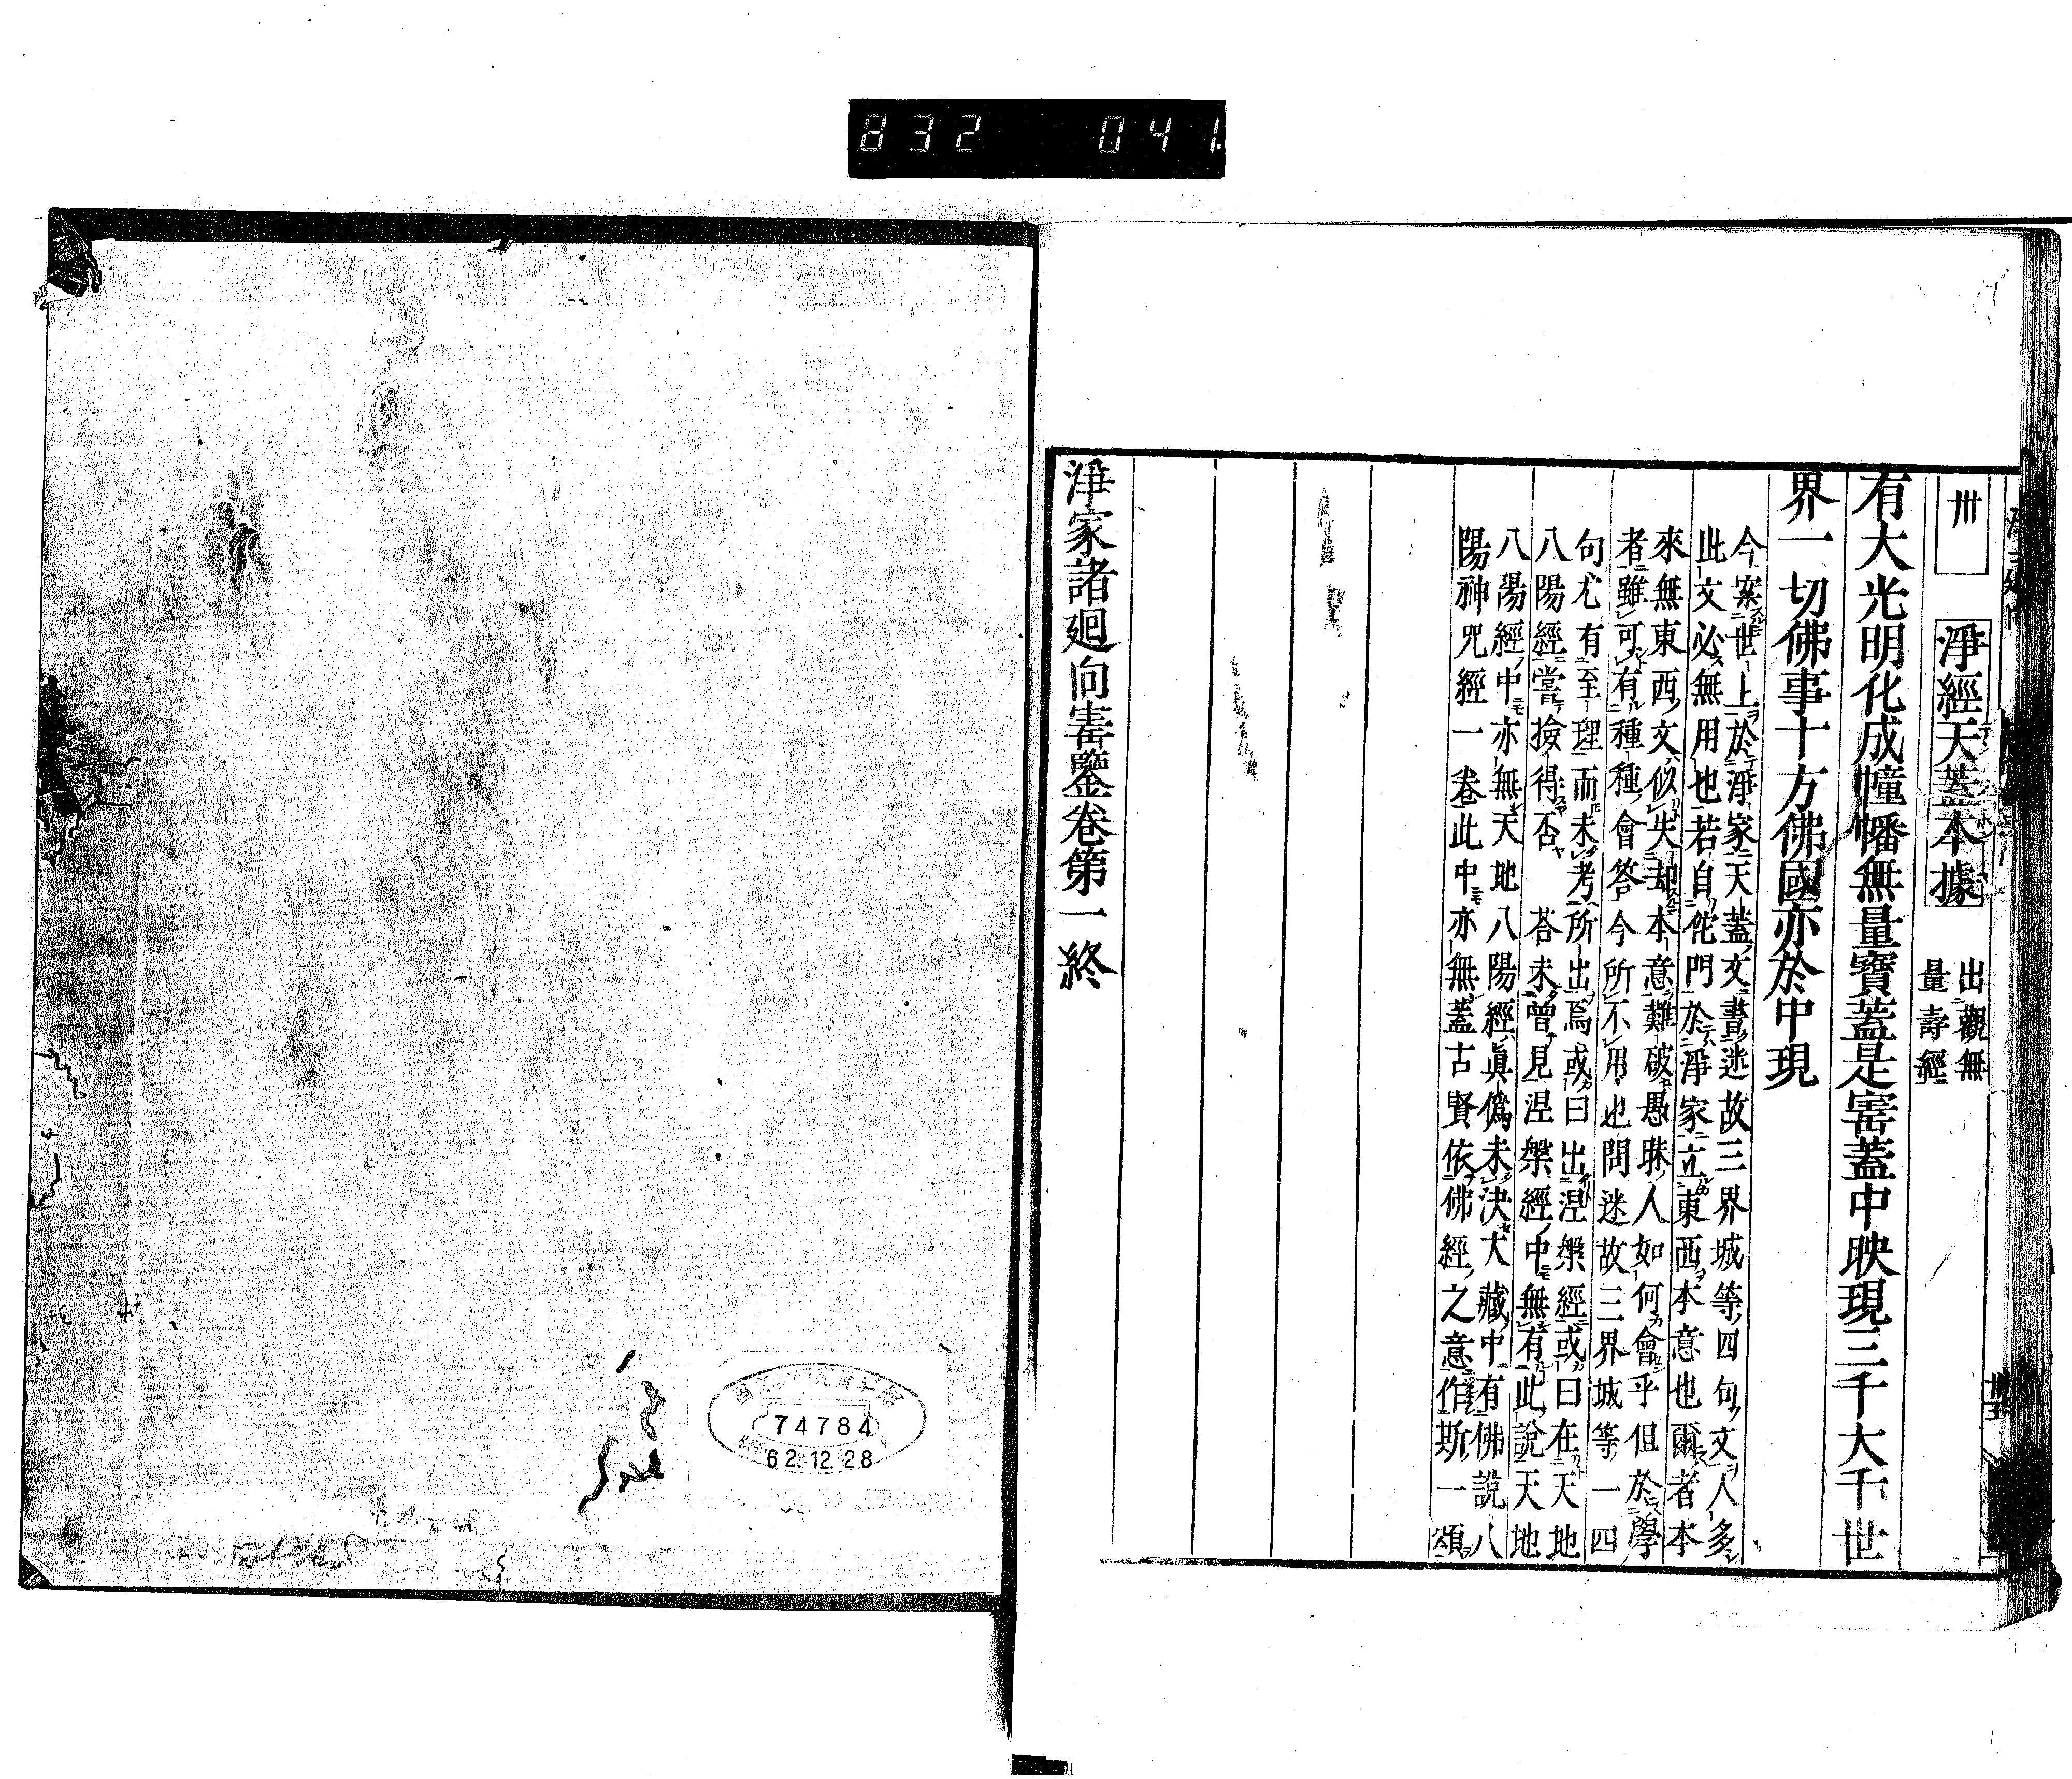 832 041.
卅 淨經天蓋本據 出觀無
量壽經
有大光明化成幢幡無量寶蓋是寶蓋中映現三千大千世
界一切佛事十方佛國亦於中現
今案世上於淨家天蓋文書迷故三界城等四句文人多
此文必無用也若自佗門於淨家立東西本意也爾者本
來無東西文似失却本意難破愚昧人如何會乎但於學
者雖可有種種會答今所不用也問迷故三界城等一四
句尤有至理而未考所出焉或曰出涅槃經或曰在天地
八陽經嘗撿得否 荅未曾見涅槃經中無有此說天地
八陽經中亦無天地八陽經眞僞未決大藏中有佛說八
陽神咒經一卷此中亦無蓋古賢依佛經之意作斯一頌
淨家諸廻向寶鑒卷第一終
74784
62.12.28